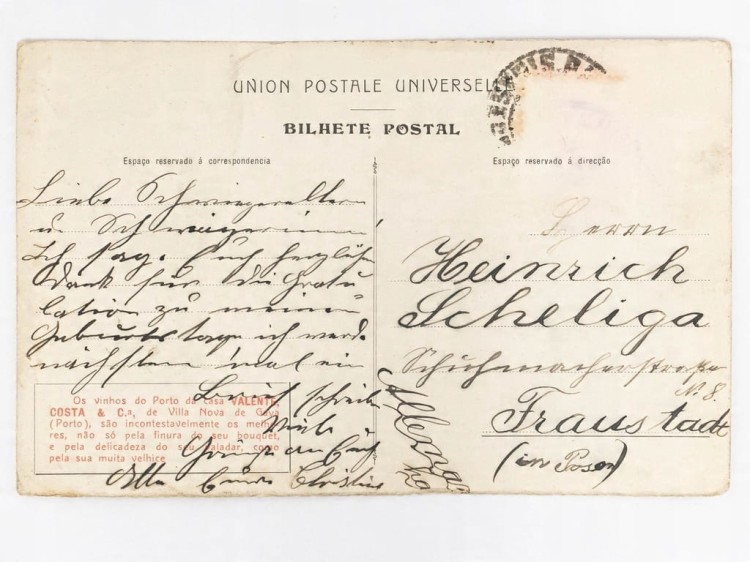 UNION POSTALE UNIVERSELLE
BILHETE POSTAL
Espaço reservado á correspondencia
Espaço reservado á direcção
Liebe Schwiegereltern
u. Schwägerinnen!
Ich sage Euch herzlichen
Dank für die Gratu
lation zu meinem
Geburtstage ich werde
nächsten mal ein
Brief schreiben
Viele
Grüße an Euch
Alle Eure
Os vinhos do Porto da casa VALENTE,
COSTA & C.a, de Villa Nova de Gaya
(Porto), são incontestavelmente os melho-
res, não só pela finura do seu bouquet,
e pela delicadeza do seu paladar, como
pela sua muita velhice
Herrn
Heinrich
Scheliga
Schuhmacherstraße
N. 8.
Fraustadt
(in Posen)